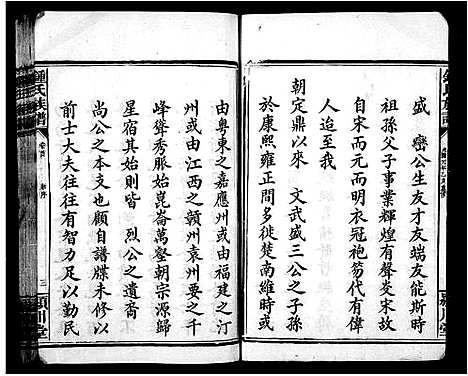 盛 巒公生友才友端友能斯時
祖孫父子事業輝煌有聲炎宋故
自宋而元而明衣冠袍笏代有傳
人迨我
朝定鼎以來 文武盛三公之子孫
於康熙雍正間多徙楚南維時或
由粵東之嘉應州或由福建之汀
州或由江西之贛州袁州要之千
峰聳秀脈始崑崙萬壑朝宗源歸
星宿其始則皆 烈公之遺裔
尚公之本支也顧自譜牒未修如
前士大夫往往有智力足以動民
鍾氏族譜
卷首
序
三
潁川堂